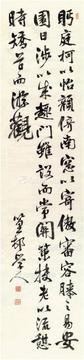 眄庭柯以怡顏倚南窓以寄傲審容膝之易安
園日涉以成趣門雖設而常關策扶老以流憩
時矯首而游觀